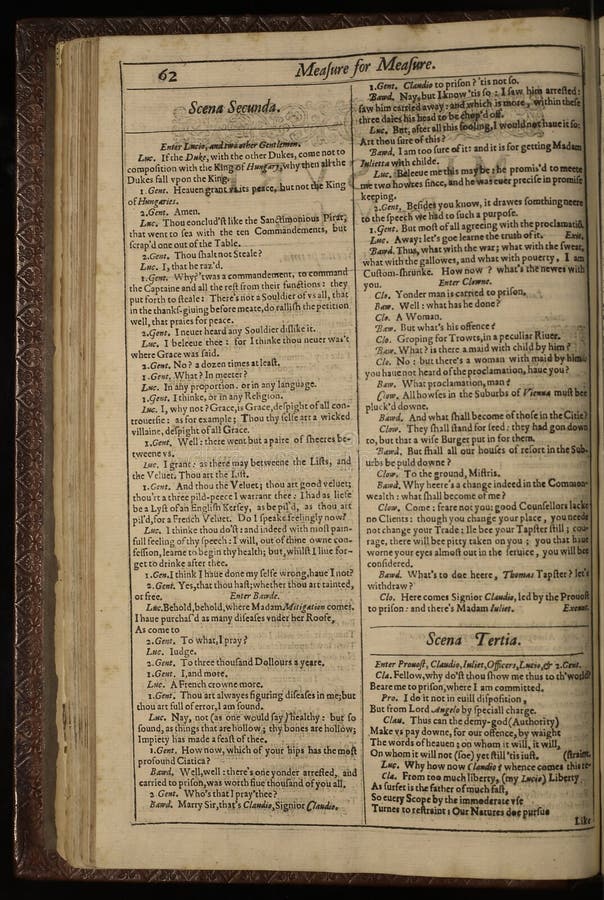 62
Meaſure for Meaſure.
Scena Secunda.
Enter Lucio, and two other Gentlemen.
Luc. If the Duke, with the other Dukes, come not to
compoſition with the King of Hungary, why then all the
Dukes fall vpon the King.
1.Gent. Heauen grant vs its peace, but not the King
of Hungaries.
2.Gent. Amen.
Luc. Thou conclud'ſt like the Sanctimonious Pirat,
that went to ſea with the ten Commandements, but
ſcrap'd one out of the Table.
2.Gent. Thou ſhalt not Steale?
Luc. I, that he raz'd.
1.Gent. Why? 'twas a commandement, to command
the Captaine and all the reſt from their functions: they
put forth to ſteale: There's not a Souldier of vs all, that
in the thankſ-giuing before meate, do ralliſh the petition
well, that praies for peace.
2.Gent. I neuer heard any Souldier diſlike it.
Luc. I beleeue thee: for I thinke thou neuer was't
where Grace was ſaid.
2.Gent. No? a dozen times at leaſt.
1.Gent. What? In meeter?
Luc. In any proportion. or in any language.
1.Gent. I thinke, or in any Religion.
Luc. I, why not? Grace, is Grace, deſpight of all con-
trouerſie: as for example; Thou thy ſelfe art a wicked
villaine, deſpight of all Grace.
1.Gent. Well: there went but a paire of ſheeres be-
tweene vs.
Luc. I grant: as there may betweene the Liſts, and
the Veluet. Thou art the Liſt.
1.Gent. And thou the Veluet; thou art good veluet;
thou'rt a three pild-peece I warrant thee: I had as liefe
be a Lyſt of an Engliſh Kerſey, as be pil'd, as thou art
pil'd, for a French Veluet. Do I ſpeake feelingly now?
Luc. I thinke thou do'ſt: and indeed with moſt pain-
full feeling of thy ſpeech: I will, out of thine owne con-
feſſion, learne to begin thy health; but, whilſt I liue for-
get to drinke after thee.
1.Gen. I think I haue done my ſelfe wrong, haue I not?
2.Gent. Yes, that thou haſt; whether thou art tainted,
or free. Enter Bawde.
Luc. Behold, behold, where Madam Mitigation comes.
I haue purchaſ'd as many diſeaſes vnder her Roofe,
As come to
2.Gent. To what, I pray?
Luc. Iudge.
2.Gent. To three thouſand Dollours a yeare.
1.Gent. I, and more.
Luc. A French crowne more.
1.Gent. Thou art alwayes figuring diſeaſes in me; but
thou art full of error, I am ſound.
Luc. Nay, not (as one would ſay) healthy: but ſo
ſound, as things that are hollow; thy bones are hollow;
Impiety has made a feaſt of thee.
1.Gent. How now, which of your hips has the moſt
profound Ciatica?
Bawd. Well, well: there's one yonder arreſted, and
carried to priſon, was worth fiue thouſand of you all.
2 Gent. Who's that I pray'thee?
Bawd. Marry Sir, that's Claudio, Signior Claudio.
1.Gent. Claudio to priſon? 'tis not ſo.
Bawd. Nay, but I know 'tis ſo: I ſaw him arreſted:
ſaw him carried away: and which is more, within theſe
three daies his head to be chop'd off.
Luc. But, after all this fooling, I would not haue it ſo:
Art thou ſure of this?
Bawd. I am too ſure of it: and it is for getting Madam
Iulietta with childe.
Luc. Beleeue me this may be: he promis'd to meete
me two howres ſince, and he was euer preciſe in promiſe
keeping.
2.Gent. Beſides you know, it drawes ſomthing neere
to the ſpeech we had to ſuch a purpoſe.
1.Gent. But moſt of all agreeing with the proclamatiō.
Luc. Away: let's goe learne the truth of it. Exit.
Bawd. Thus, what with the war; what with the ſweat,
what with the gallowes, and what with pouerty, I am
Cuſtom-ſhrunke. How now? what's the newes with
you. Enter Clowne.
Clo. Yonder man is carried to priſon.
Baw. Well: what has he done?
Clo. A Woman.
Baw. But what's his offence?
Clo. Groping for Trowts, in a peculiar Riuer.
Baw. What? is there a maid with child by him?
Clo. No: but there's a woman with maid by him:
you haue not heard of the proclamation, haue you?
Baw. What proclamation, man?
Clow. All howſes in the Suburbs of Vienna muſt bee
pluck'd downe.
Bawd. And what ſhall become of thoſe in the Citie?
Clow. They ſhall ſtand for ſeed: they had gon down
to, but that a wiſe Burger put in for them.
Bawd. But ſhall all our houſes of reſort in the Sub-
urbs be puld downe?
Clow. To the ground, Miſtris.
Bawd. Why heere's a change indeed in the Common-
wealth: what ſhall become of me?
Clow. Come: feare not you: good Counſellors lacke
no Clients: though you change your place, you neede
not change your Trade: Ile bee your Tapſter ſtill; cou-
rage, there will bee pitty taken on you; you that haue
worne your eyes almoſt out in the ſeruice, you will bee
conſidered.
Bawd. What's to doe heere, Thomas Tapſter? let's
withdraw?
Clo. Here comes Signior Claudio, led by the Prouoſt
to priſon: and there's Madam Iuliet. Exeunt.
Scena Tertia.
Enter Prouoſt, Claudio, Iuliet, Officers, Lucio, & 2.Gent.
Cla. Fellow, why do'ſt thou ſhow me thus to th'world?
Beare me to priſon, where I am committed.
Pro. I do it not in euill diſpoſition,
But from Lord Angelo by ſpeciall charge.
Clau. Thus can the demy-god (Authority)
Make vs pay downe, for our offence, by waight
The words of heauen; on whom it will, it will,
On whom it will not (ſoe) yet ſtill 'tis iuſt. (ſtraint.
Luc. Why how now Claudio? whence comes this re-
Cla. From too much liberty, (my Lucio) Liberty
As ſurfet is the father of much faſt,
So euery Scope by the immoderate vſe
Turnes to reſtraint: Our Natures doe purſue
Like